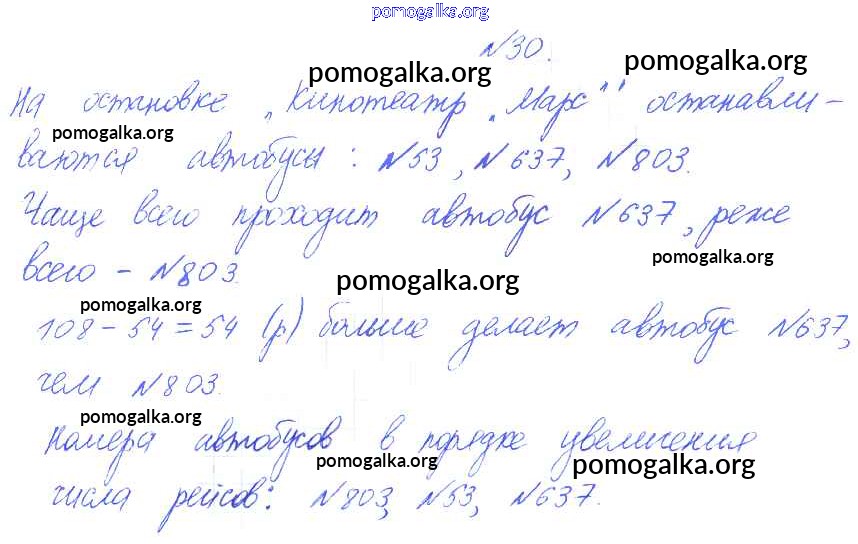 pomogalka.org
№30.
pomogalka.org
pomogalka.org
На остановке „Кинотеатр „Марс“ останавли-
pomogalka.org
ваются автобусы: №53, №637, №803.
Чаще всего проходит автобус №637, реже
pomogalka.org
всего - №803.
pomogalka.org
pomogalka.org
108-54=54 (р) больше делает автобус №637,
чем №803.
pomogalka.org
Номера автобусов в порядке увеличения
pomogalka.org
pomogalka.org
числа рейсов: №803, №53, №637.